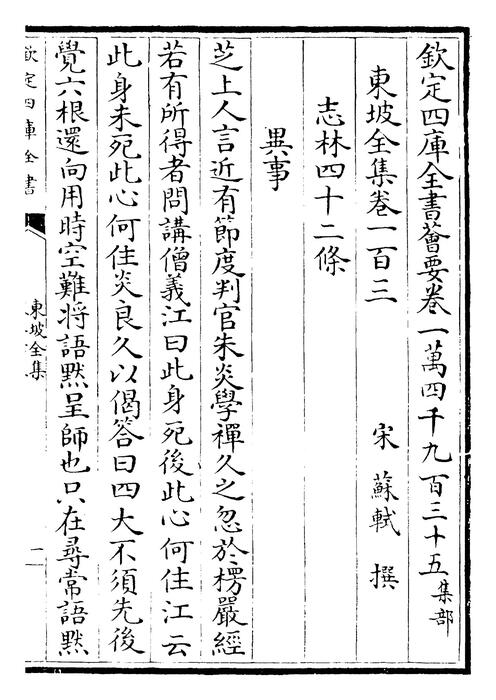 欽定四庫全書薈要卷一萬四千九百三十五集部
東坡全集卷一百三 宋 蘇軾 撰
志林四十二條
異事
芝上人言近有節度判官朱炎學禪久之忽於楞嚴經
若有所得者問講僧義江曰此身死後此心何住江云
此身未死此心何住炎良久以偈答曰四大不須先後
覺六根還向用時空難將語黙呈師也只在尋常語黙
欽定四庫全書
東坡全集
一